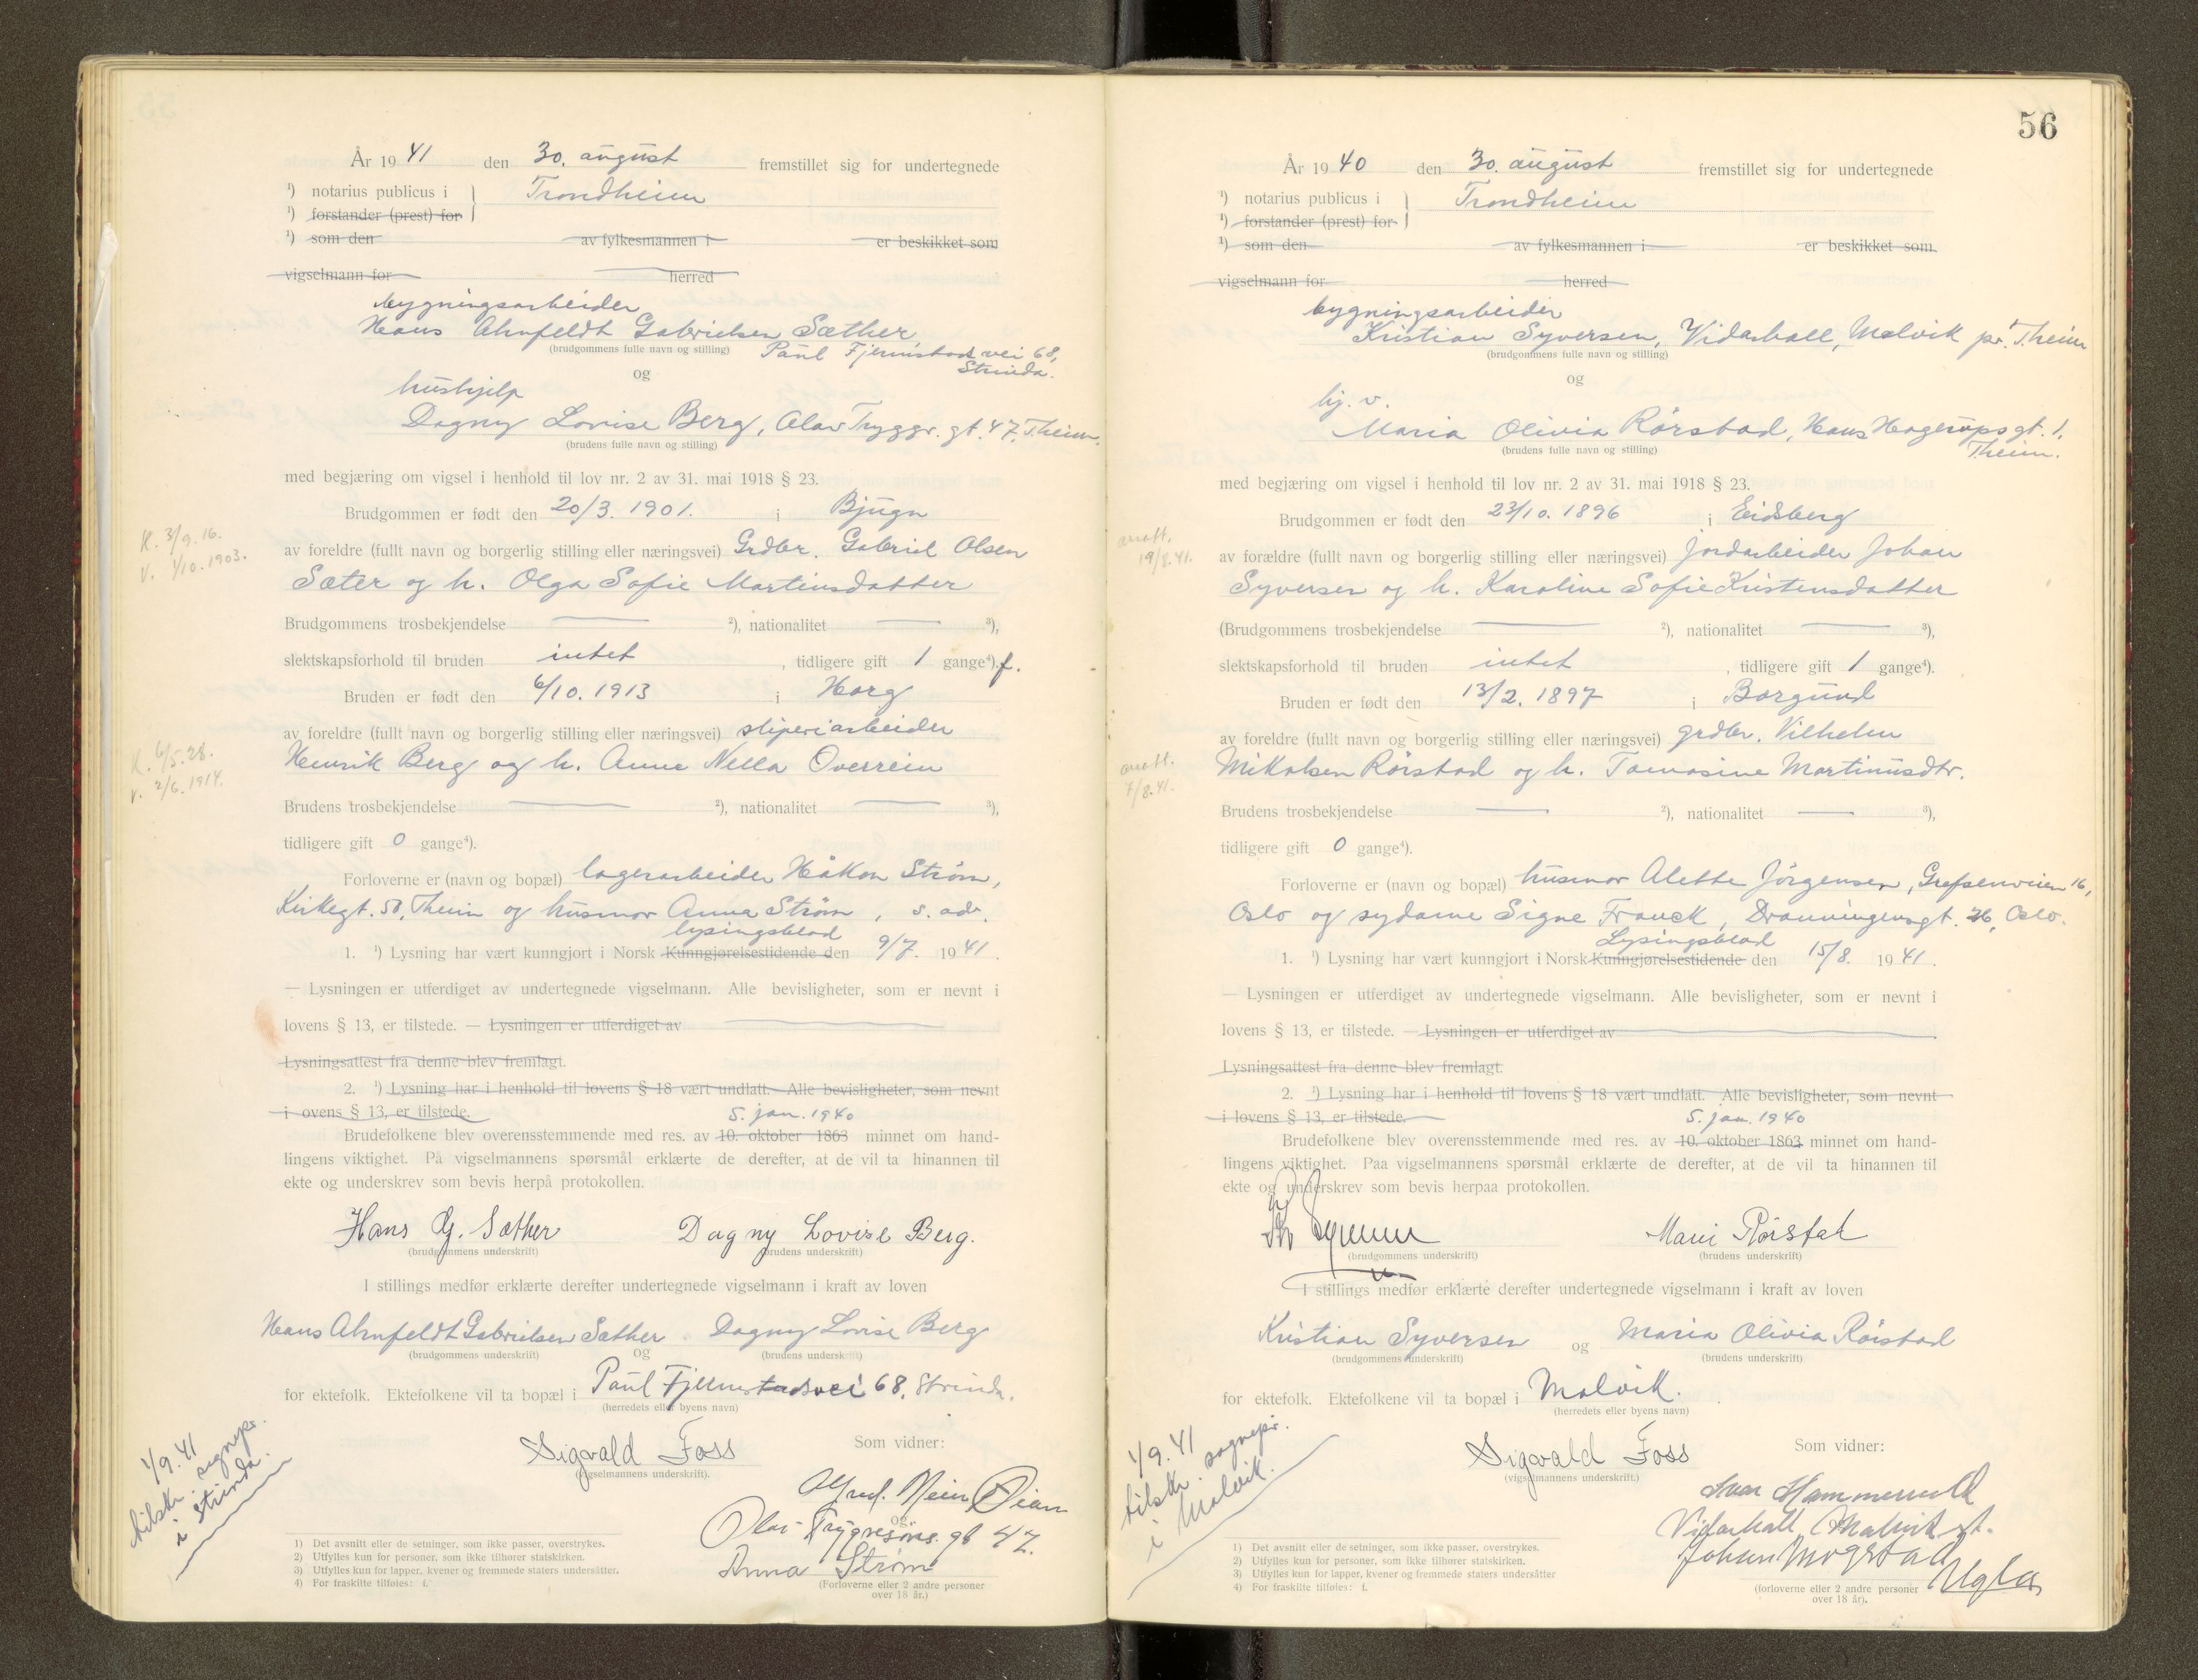 År 19 41 den 30. august fremstillet sig for undertegnede
¹) notarius publicus i } Trondheim
¹) forstander (prest) for
¹) som den av fylkesmannen i er beskikket som
vigselmann for herred
bygningsarbeider
Hans Ahnfeldt Gabrielsen Sæther
(brudgommens fulle navn og stilling) Paul Fjermstad vei 68,
Strinda.
og
hushjelp
Dagny Lovise Berg, Olav Tryggv. gt. 47, Theim.
(brudens fulle navn og stilling)
med begjæring om vigsel i henhold til lov nr. 2 av 31. mai 1918 § 23.
Brudgommen er født den 20/3. 1901. i Bjugn
K. 3/9. 16.
V. 1/10. 1903.
av foreldre (fullt navn og borgerlig stilling eller næringsvei) Grdbr. Gabriel Olsen
Sæter og h. Olga Sofie Martinsdatter
Brudgommens trosbekjendelse ²), nationalitet ³),
slektskapsforhold til bruden intet , tidligere gift 1 gange⁴).f.
Bruden er født den 6/10. 1913 i Horg
av foreldre (fullt navn og borgerlig stilling eller næringsvei) sliperiarbeider
K. 6/5.28.
V. 2/6. 1914.
Henrik Berg og h. Anne Nella Overrein
Brudens trosbekjendelse ²), nationalitet ³),
tidligere gift 0 gange⁴).
Forloverne er (navn og bopæl) lagerarbeider Håkon Strøm,
Kirkegt. 50, Theim og husmor Anna Strøm, s. adr.
lysingsblad
1. ¹) Lysning har vært kunngjort i Norsk Kunngjørelsestidende den 9/7. 19 41.
— Lysningen er utferdiget av undertegnede vigselmann. Alle bevisligheter, som er nevnt i
lovens § 13, er tilstede. — Lysningen er utferdiget av
Lysningsattest fra denne blev fremlagt.
2. ¹) Lysning har i henhold til lovens § 18 vært undlatt. Alle bevisligheter, som nevnt
i ovens § 13, er tilstede. 5. jan. 1940
Brudefolkene blev overensstemmende med res. av 10. oktober 1863 minnet om hand-
lingens viktighet. På vigselmannens spørsmål erklærte de derefter, at de vil ta hinannen til
ekte og underskrev som bevis herpå protokollen.
Hans G. Sæther Dagny Lovise Berg.
(brudgommens underskrift) (brudens underskrift)
I stillings medfør erklærte derefter undertegnede vigselmann i kraft av loven
Hans Ahnfeldt Gabrielsen Sæther Dagny Lovise Berg
(brudgommens underskrift) og (brudens underskrift)
for ektefolk. Ektefolkene vil ta bopæl i Paul Fjermstadsvei 68, Strinda.
(herredets eller byens navn)
Sigvald Foss Som vidner:
(vigselmannens underskrift).
1/9. 41
tilskr. sognepr.
i Strinda.
Øien
og
Olav Trygvesøns. gt 47.
Anna Strøm
(Forloverne eller 2 andre personer
over 18 år.)
1) Det avsnitt eller de setninger, som ikke passer, overstrykes.
2) Utfylles kun for personer, som ikke tilhører statskirken.
3) Utfylles kun for lapper, kvener og fremmede staters undersåtter.
4) For fraskilte tilføies: f.
56
År 19 40 den 30. august fremstillet sig for undertegnede
¹) notarius publicus i } Trondheim
¹) forstander (prest) for
¹) som den av fylkesmannen i er beskikket som
vigselmann for herred
bygningsarbeider
Kristian Syversen, Vidarhall, Malvik pr. Theim
(brudgommens fulle navn og stilling)
og
hj. v.
Maria Olivia Rørstad, Hans Hagerupsgt. 1,
Theim.
(brudens fulle navn og stilling)
med begjæring om vigsel i henhold til lov nr. 2 av 31. mai 1918 § 23.
Brudgommen er født den 23/10. 1896 i Eidsberg
19/8.41.
av forældre (fullt navn og borgerlig stilling eller næringsvei) jordarbeider Johan
Syversen og h. Karoline Sofie Kristensdatter
(Brudgommens trosbekjendelse ²), nationalitet ³),
slektskapsforhold til bruden intet , tidligere gift 1 gange⁴).
Bruden er født den 13/2. 1897 i Borgund
av foreldre (fullt navn og borgerlig stilling eller næringsvei) grdbr. Vilhelm
7/8.41.
Mikalsen Rørstad og h. Tomasine Martinusdtr.
Brudens trosbekjendelse ²), nationalitet ³),
tidligere gift 0 gange⁴).
Forloverne er (navn og bopæl) husmor Alette Jørgensen, Grefsenveien 16,
Oslo og sydame Signe Franck, Dronningensgt. Oslo.
Lysingsblad
1. ¹) Lysning har vært kunngjort i Norsk Kunngjørelsestidende den 15/8. 19 41.
— Lysningen er utferdiget av undertegnede vigselmann. Alle bevisligheter, som er nevnt i
lovens § 13, er tilstede. — Lysningen er utferdiget av
Lysningsattest fra denne blev fremlagt.
2. ¹) Lysning har i henhold til lovens § 18 vært undlatt. Alle bevisligheter, som nevnt
i lovens § 13, er tilstede. 5. jan. 1940
Brudefolkene blev overensstemmende med res. av 10. oktober 1863 minnet om hand-
lingens viktighet. Paa vigselmannens spørsmål erklærte de derefter, at de vil ta hinannen til
ekte og underskrev som bevis herpaa protokollen.
Kr Syversen Marie Rørstad
(brudgommens underskrift) (brudens underskrift)
I stillings medfør erklærte derefter undertegnede vigselmann i kraft av loven
Kristian Syversen og Maria Olivia Rørstad
(brudgommens underskrift) (brudens underskrift)
for ektefolk. Ektefolkene vil ta bopæl i Malvik.
(herredets eller byens navn)
Sigvald Foss Som vidner:
(vigselmannens underskrift.)
1/9. 41
tilskr. sognepr.
i Malvik.
Vidarhall, Malvik st.
Johan Mogstad
Ugla
(forloverne eller 2 andre personer
over 18 år).
1) Det avsnitt eller de setninger, som ikke passer, overstrykes.
2) Utfylles kun for personer, som ikke tilhører statskirken.
3) Utfylles kun for lapper, kvener og fremmede staters undersåtter
4) For fraskilte tilføies: f.